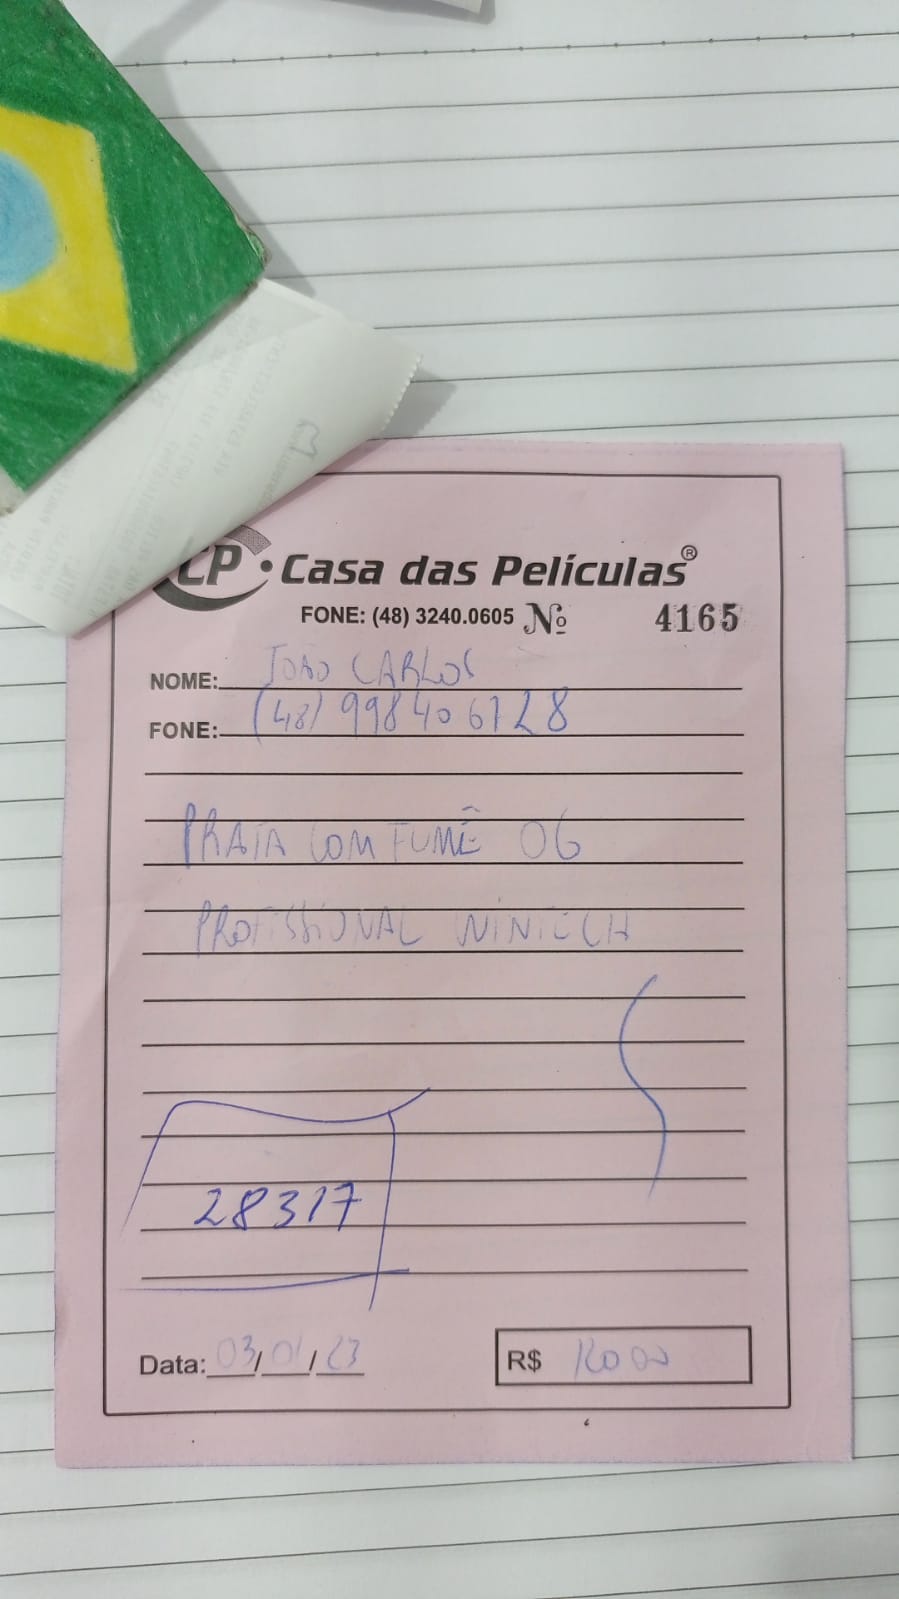 CP • Casa das Películas®
FONE: (48) 3240.0605 Nº 4165
NOME: JOÃO CARLOS
FONE: (48) 998406728
PRATA COM FUMÊ 06
PROFISSIONAL WINTECH
28317
Data: 03/01/23
R$